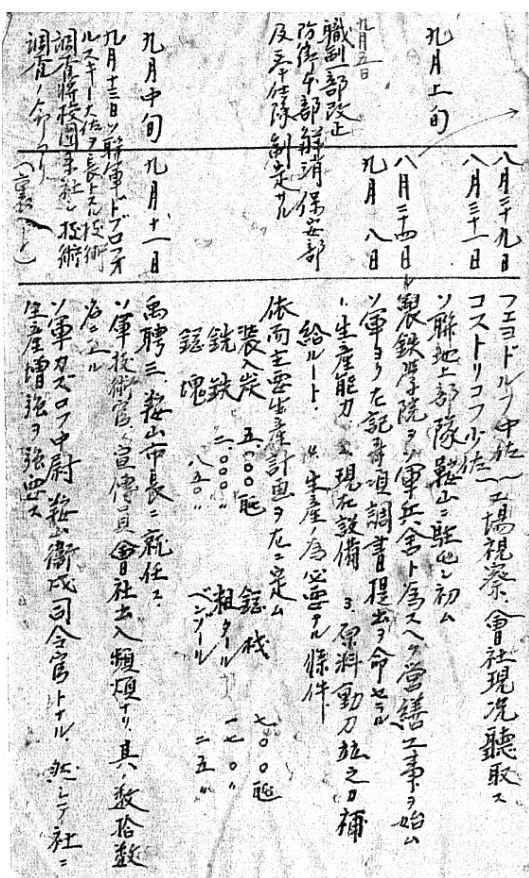 九月上旬
九月五日
職制一部改正
防衛本部解消保安部
及奉仕隊制定サル
九月中旬
九月十三日ソ聯軍ドブロフオ
ルスキー大佐ヲ長トスル技術
調査将校団来社シ技術
調査ノ命アリ
(裏ヘ)
八月二十九日
八月三十一日
八月二十四日
九月八日
九月十一日
フェヨドルフ中佐
コストリコフ少佐
工場視察、會社現況聽取ス
ソ聯地上部隊鞍山ニ駐屯シ初ム
製鉄学院ヲソ軍兵舎ト為スベク営繕工事ヲ始ム
ソ軍ヨリ左記事項調書提出ヲ命セラル
1.生産能力 2.現在設備 3.原料動力並之カ補
給ルート. 4.生産為必要ナル條件
依而主要生産計画ヲ左ニ定ム
装入炭 五、〇〇〇瓲 鋼材 七〇〇瓲
銑鉄 二、〇〇〇〃 粗タール 一七〇〃
鋼塊 八五〇〃 ベンゾール 二五〃
禹聘三、鞍山市長ニ就任ス
ソ軍技術官、宣傳員會社出入頻煩ナリ、其ノ数拾数
名ニ上ル
ソ軍カズロフ中尉鞍山衛戍司令官トナル、然シテ社ニ
生産増強ヲ強要ス